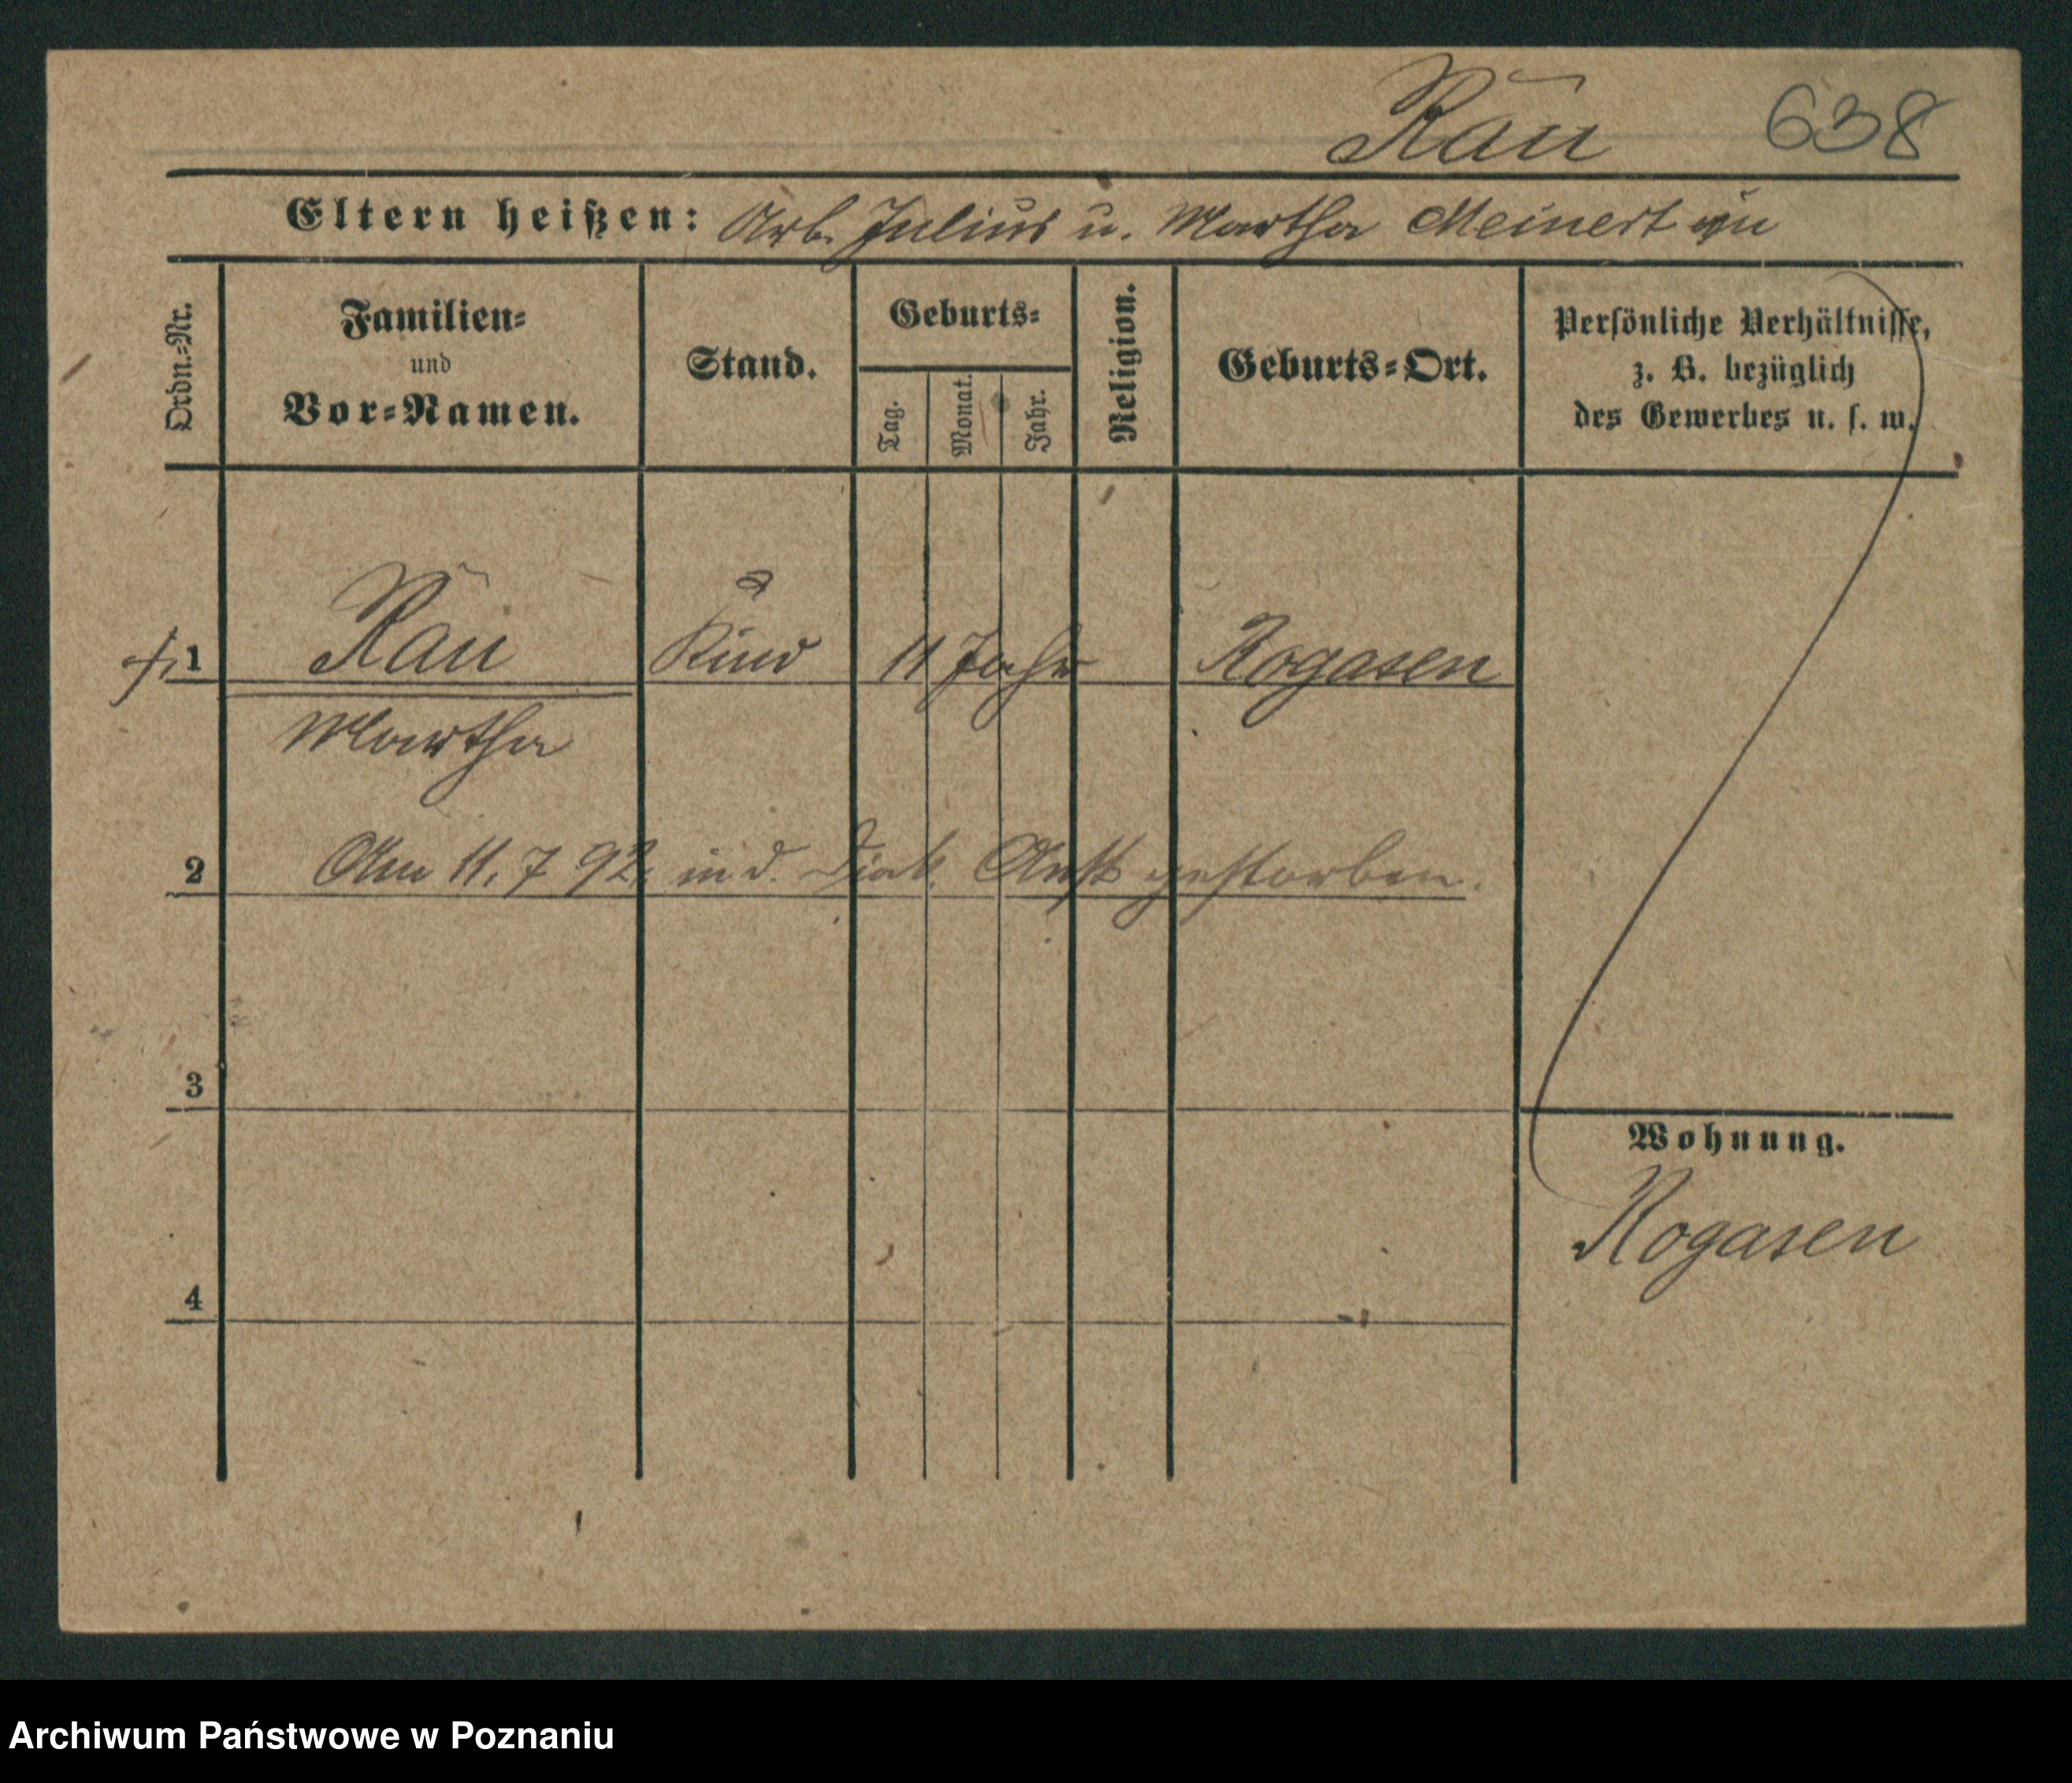 Rau 638
Eltern heißen: Arb. Julius u. Martha Meinert in
Ordn.-Nr.
Familien-
und
Vor-Namen.
Stand.
Geburts-
Tag.
Monat.
Jahr.
Religion.
Geburts-Ort.
Persönliche Verhältnisse,
z. B. bezüglich
des Gewerbes u. s. w.
1 Rau Kind 11 Jahr Rogasen
Martha
2 Am 11. 7 92. in d. Diak. Anst gestorben.
3
Wohnung.
Rogasen
4
Archiwum Państwowe w Poznaniu